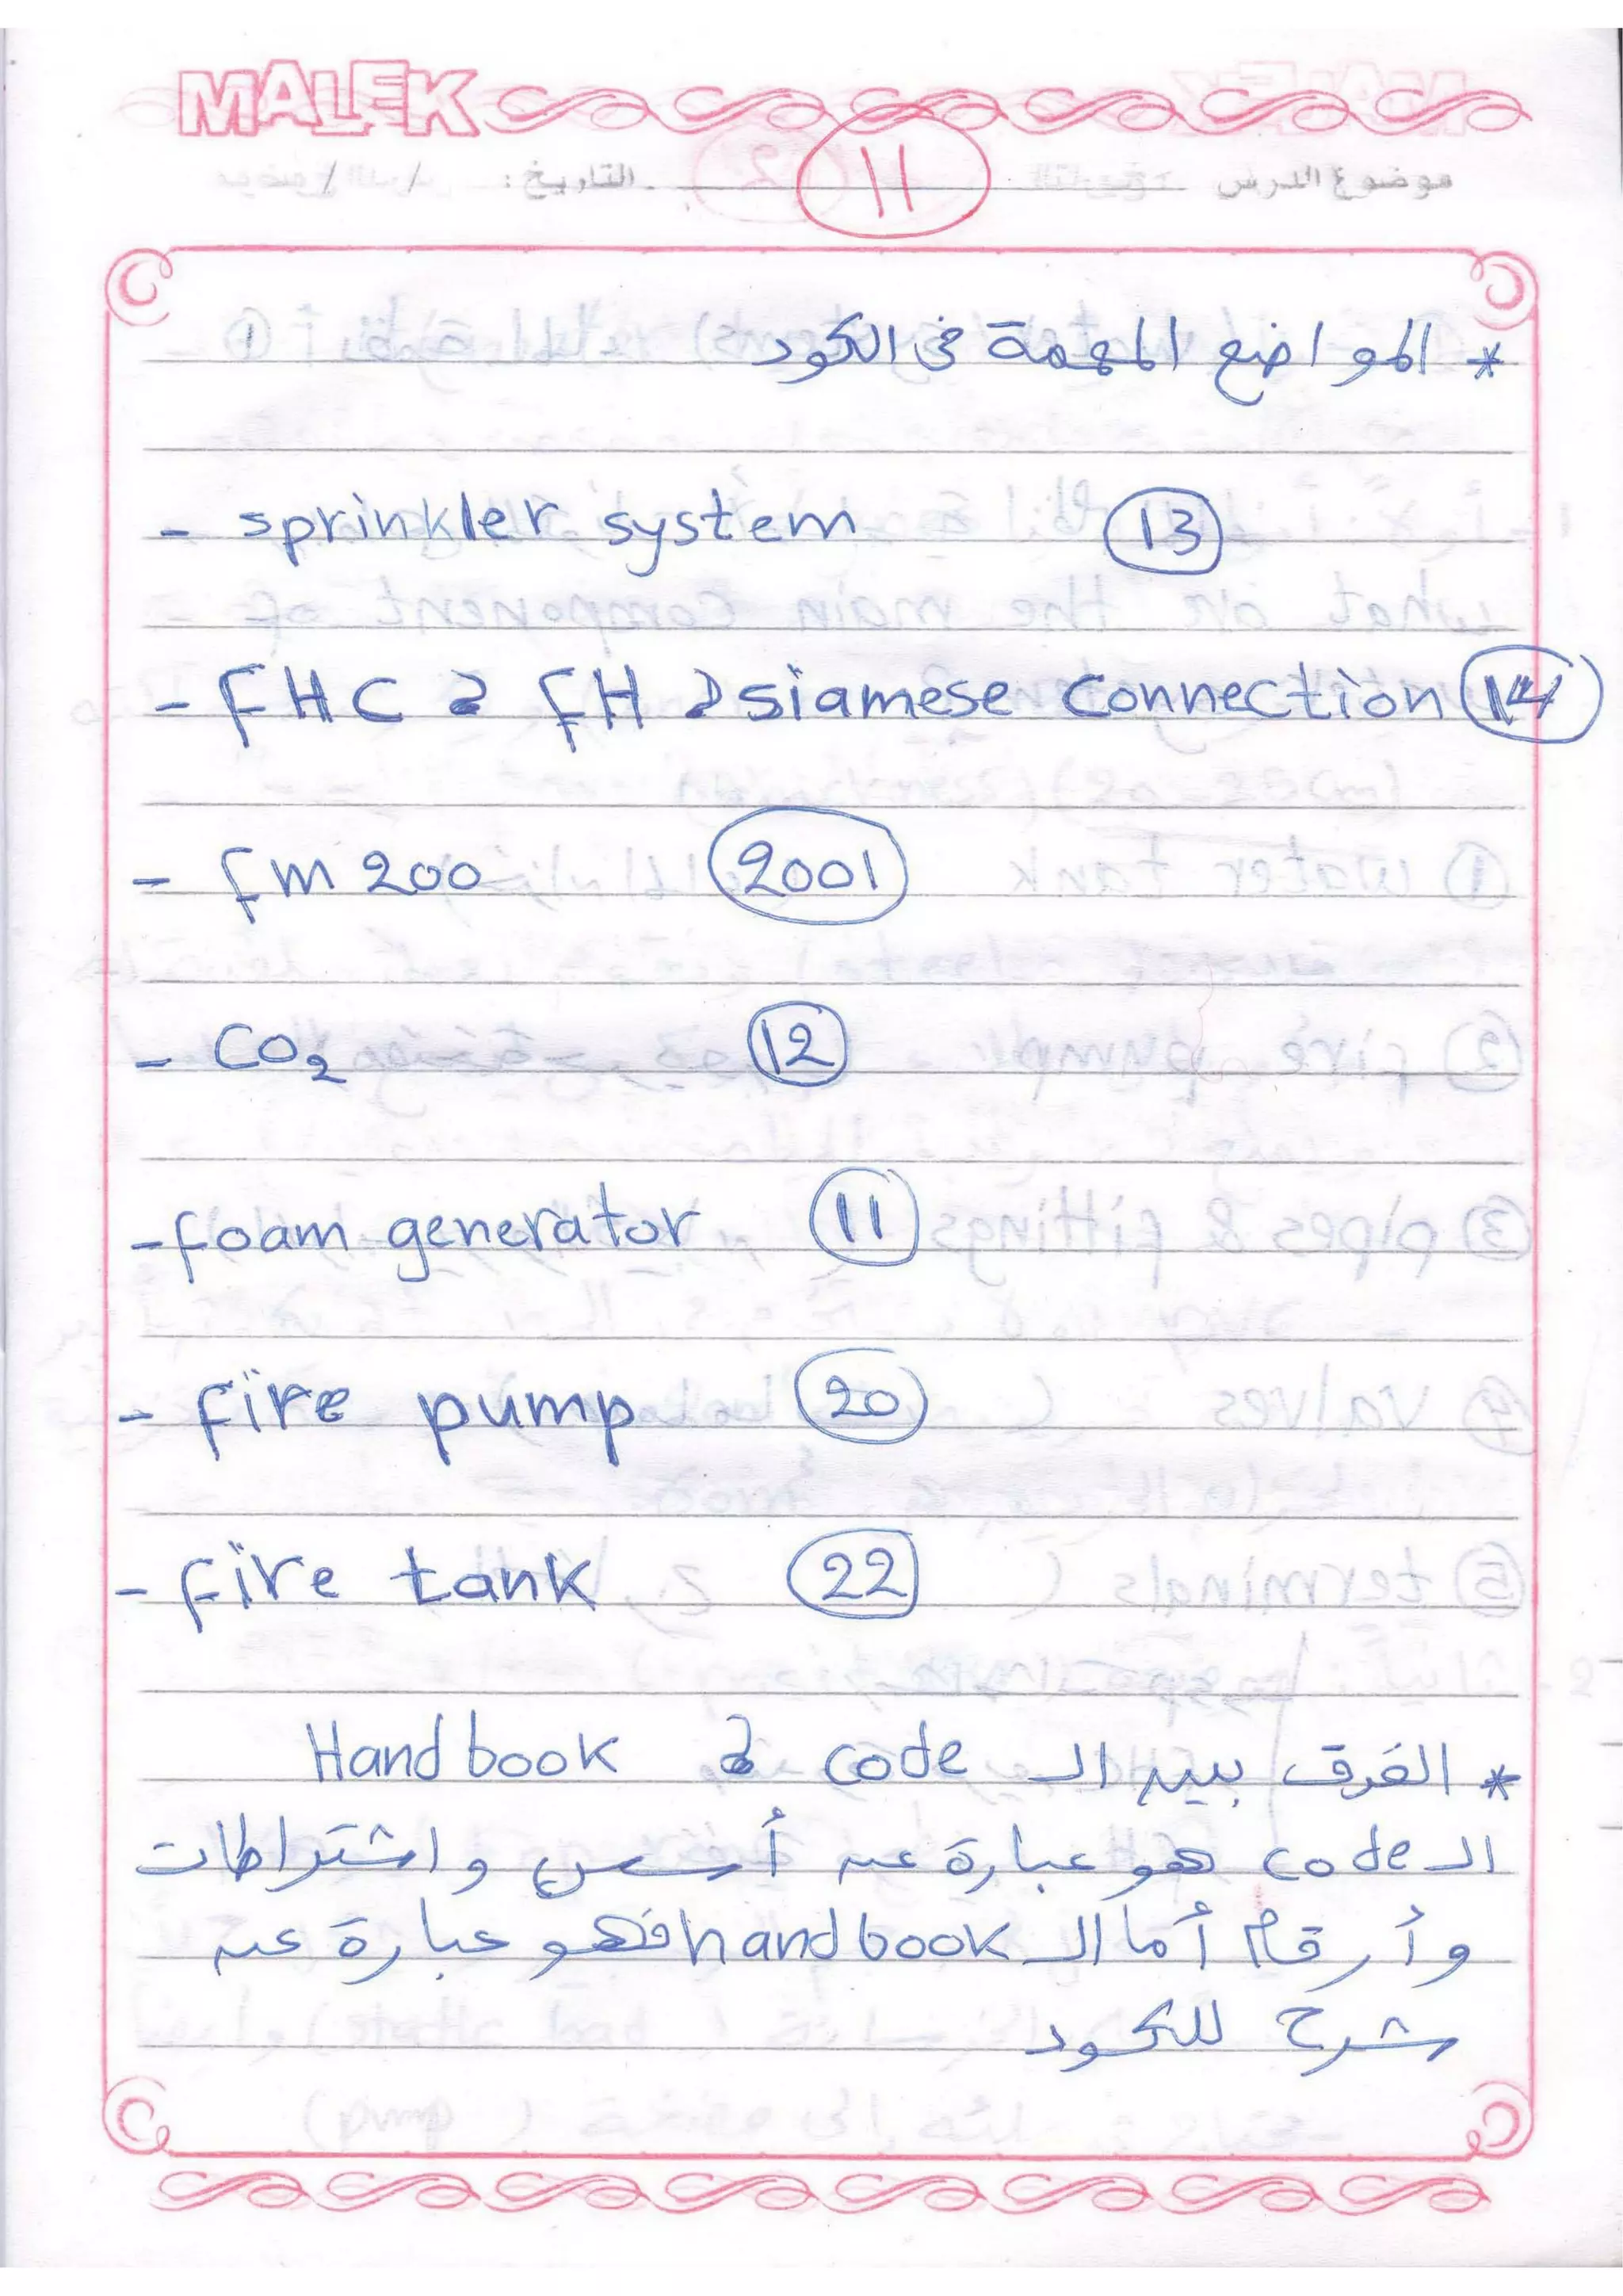 MALEK
موضوع الدرس 11 التاريخ: / /
* المواضع المهمة فى الكود
- sprinkler system 13
- FHC و FH و siamese connection 14
- fm 200 2001
- CO2 12
- foam generator 11
- fire pump 20
- fire tank 22
* الفرق بين الـ code و Hand book
الـ code هو عبارة عن أسس واشتراطات
وأرقام أما الـ hand book فهو عبارة عن
شرح للكود